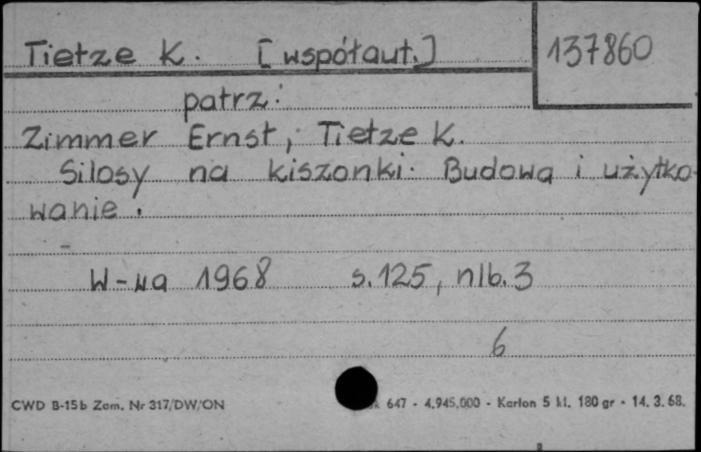 Tietze K. [współaut.] 137860
patrz:
Zimmer Ernst, Tietze K.
Silosy na kiszonki. Budowa i użytko-
wanie.
W-wa 1968 s.125, nlb.3
6
CWD B-15b Zam. Nr 317/DW/ON 647 - 4.945.000 - Karton 5 kl. 180 gr - 14. 3. 68.